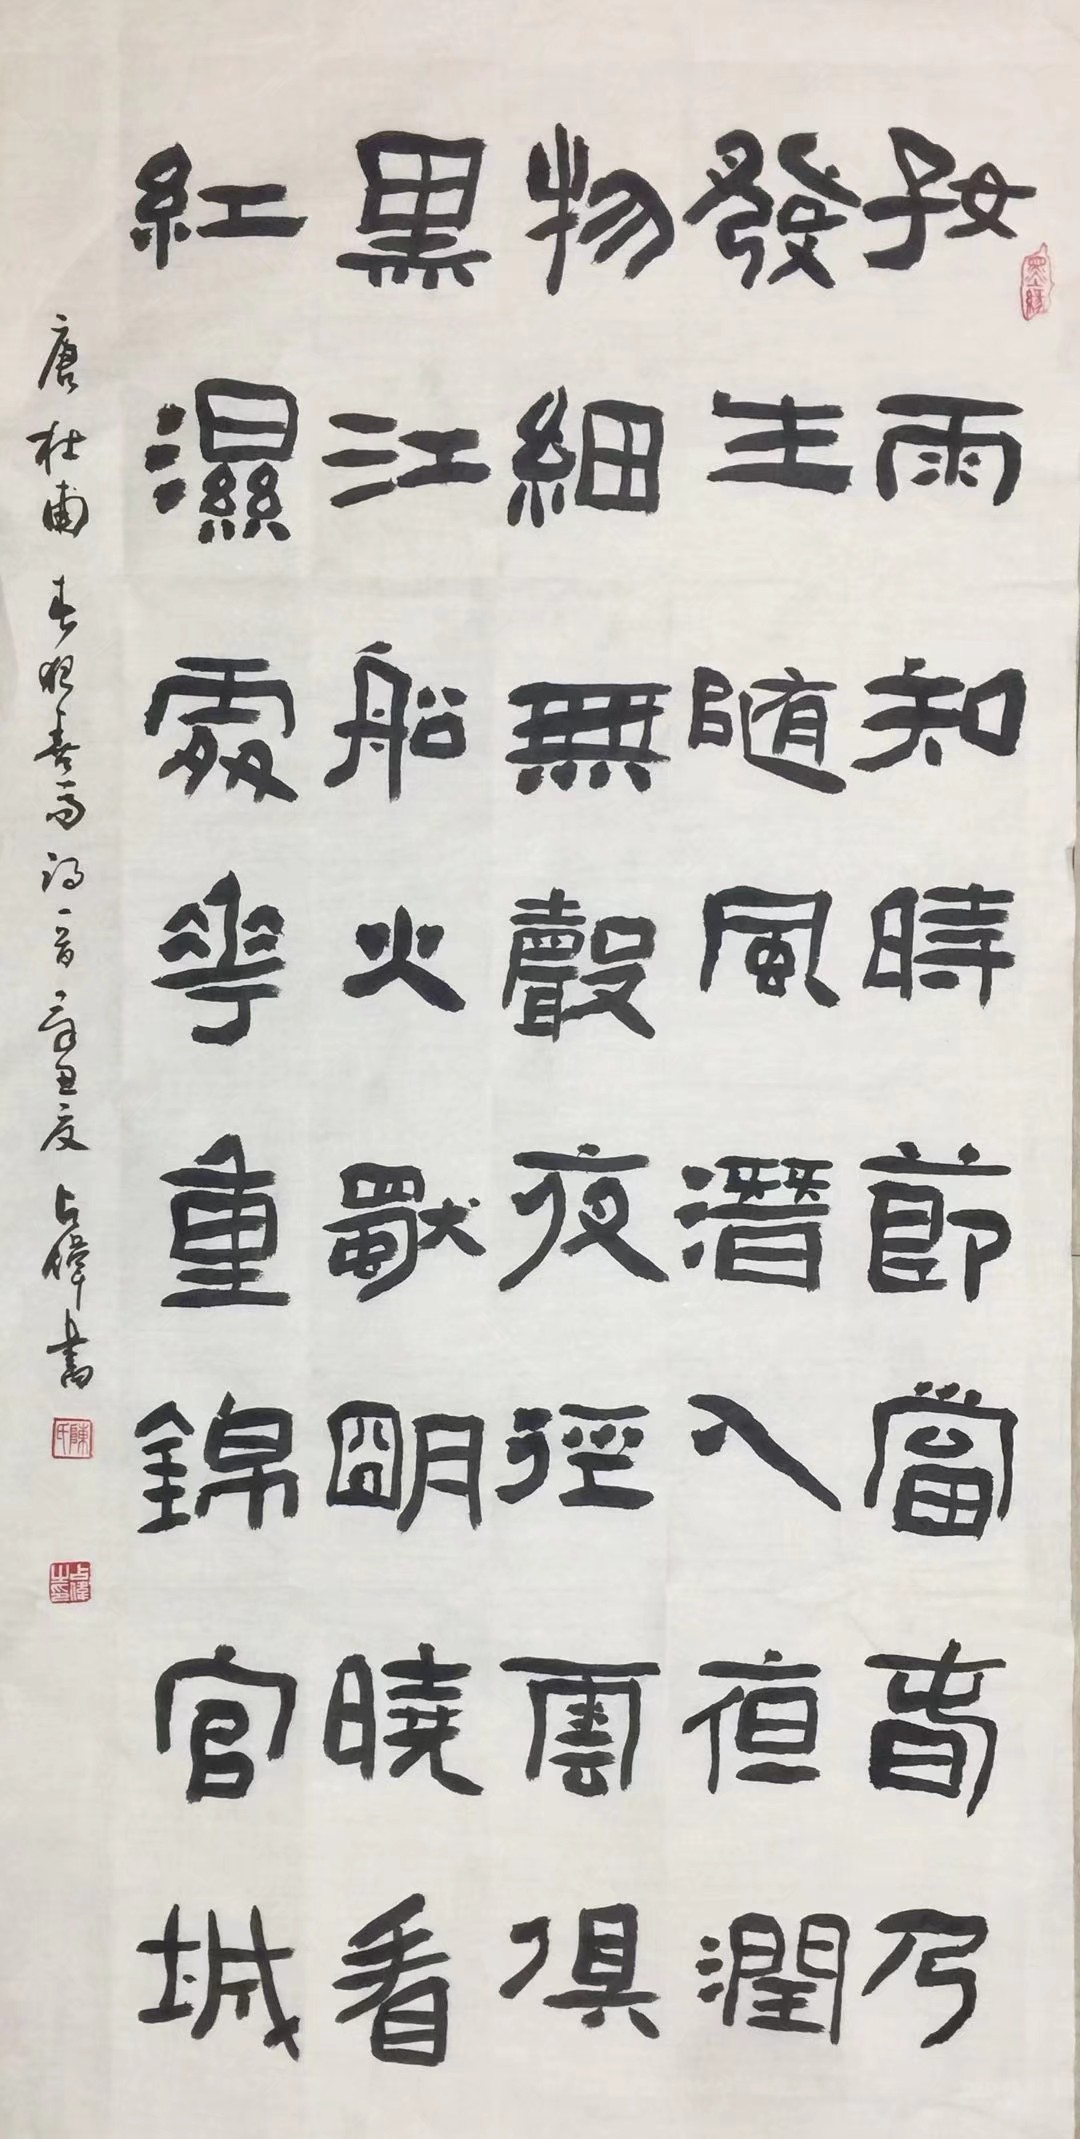 好雨知時節當春乃
發生随風潛入夜潤
物細無聲夜徑雲俱
黑江船火獨明曉看
紅濕處花重錦官城
唐杜甫春夜喜雨詩一首辛丑夏占偉書
陳氏
占偉之印